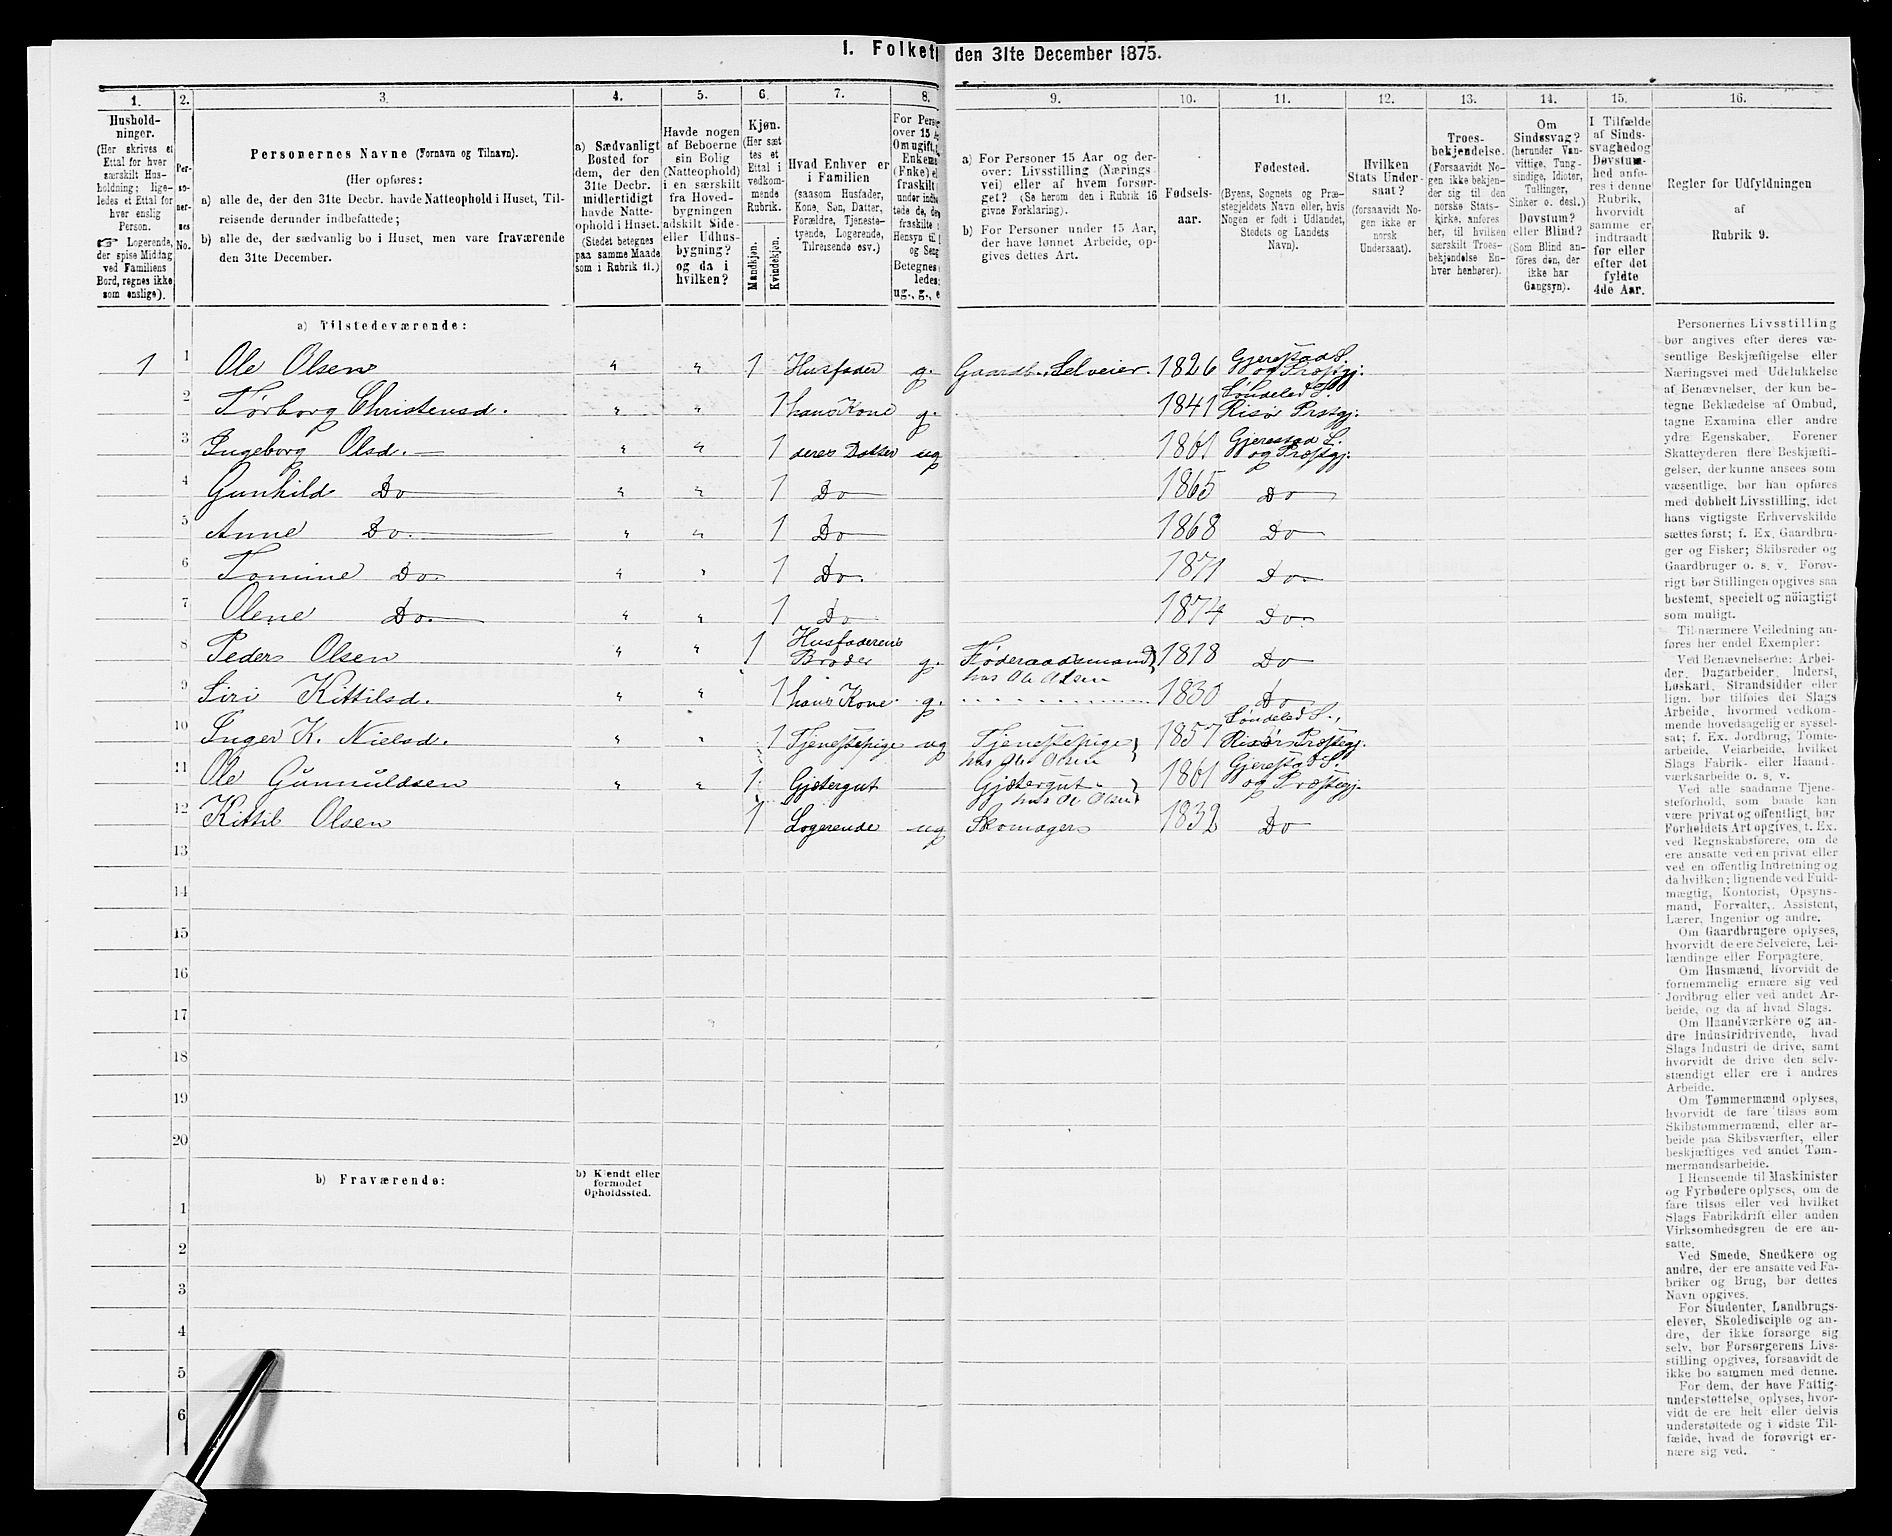 1. Folket
den 31te December 1875.
1.
2.
3.
4.
5.
6.
7.
8.
9.
10.
11.
12.
13.
14.
15.
16.
Hushold-
ninger.
(Her skrives et
Ettal for hver
særskilt Hus-
holdning; lige-
ledes et Ettal for
hver enslig
Person.
☞ Logerende,
der spise Middag
ved Familiens
Bord, regnes ikke
som enslige).
Per-
so-
ner-
nes
No.
Personernes Navne (Fornavn og Tilnavn).
(Her opføres:
a) alle de, der den 31te Decbr. havde Natteophold i Huset, Til-
reisende derunder indbefattede;
b) alle de, der sædvanlig bo i Huset, men vare fraværende
den 31te December.
a) Sædvanligt
Bosted for
dem, der den
31te Decbr.
midlertidigt
havde Natte-
ophold i Huset.
(Stedet betegnes
paa samme Maade
som i Rubrik 11.)
Havde nogen
af Beboerne
sin Bolig
(Natteophold)
i en særskilt
fra Hoved-
bygningen
adskilt Side-
eller Udhus-
bygning?
og da i
hvilken?
Kjøn.
(Her sæt-
tes et
Ettal i
vedkom-
mende
Rubrik.
Mandkjøn.
Kvindekjøn.
Hvad Enhver er
i Familien
(saasom Husfader,
Kone, Søn, Datter,
Forældre, Tjeneste-
tyende, Logerende,
Tilreisende osv.)
For Perso
over 15 A
Om ugift,
Enkema
(Enke) el
fraskilt
under indb
tede de, de
fraskilte
Hensyn til
og Seng
Betegnes
ledes:
ug., g., e
a) For Personer 15 Aar og der-
over: Livsstilling (Nærings-
vei) eller af hvem forsør-
get? (Se herom den i Rubrik 16
givne Forklaring).
b) For Personer under 15 Aar,
der have lønnet Arbeide, op-
gives dettes Art.
Fødsels-
aar.
Fødested.
(Byens, Sognets og Præ-
stegjeldets Navn eller, hvis
Nogen er født i Udlandet,
Stedets og Landets
Navn).
Hvilken
Stats Under-
saat?
(forsaavidt No-
gen ikke er
norsk
Undersaat).
Troes-
bekjendelse.
(Forsaavidt No-
gen ikke bekjen-
der sig til den
norske Stats-
kirke, anføres
her, til hvilken
særskilt Troes-
bekjendelse En-
hver henhører).
Om
Sindssvag?
(herunder Van-
vittige, Tung-
sindige, Idioter,
Tullinger,
Sinker o. desl.)
Døvstum?
eller Blind?
(Som Blind an-
føres den, der
ikke har
Gangsyn).
I Tilfælde
af Sinds-
svaghed og
Døvstum-
hed anfø-
res i denne
Rubrik,
hvorvidt
samme er
indtraadt
før eller
efter det
fyldte
4de Aar.
Regler for Udfyldningen
af
Rubrik 9.
a) Tilstedeværende:
1 1 Ole Olsen " " 1 Husfader g. Gaardb., Selveier. 1826 Gjerestad S. og Præstgj.
2 Torborg Christensd. " " 1 hans Kone g. 1841 Søndeled S. Risør Prstgj.
3 Ingeborg Olsd. " " 1 deres Datter ug 1861 Gjerestad S. og Præstgj.
4 Gunhild Do " " 1 Do 1865 Do
5 Anne Do. " " 1 Do 1868 Do
6 Tomine Do " " 1 Do. 1871 Do
7 Olene Do. " " 1 Do 1874 Do
8 Peder Olsen " " 1 Husfaderens Broder g. Føderaadsmand hos Ole Olsen 1818 Do
9 Siri Kittilsd. " " 1 hans Kone g. 1830 Do
10 Inger K. Nielsd. " " 1 Tjenestepige ug Tjenestepige hos Ole Olsen 1857 Søndeled S., Risør Præstegj.
11 Ole Gunnuldsen " " 1 Gjætergut Gjætergut hos Ole Olsen 1861 Gjerestad S. og Præstegj.
12 Kittil Olsen 1 Logerende ug Skomager 1832 Do
13
14
15
16
17
18
19
20
b) Fraværende:
b) Kjendt eller
formodet
Opholdssted.
1
2
3
4
5
6
Personernes Livsstilling
bør angives efter deres væ-
sentlige Beskjæftigelse eller
Næringsvei med Udelukkelse
af Benævnelser, der kun be-
tegne Beklædelse af Ombud,
tagne Examina eller andre
ydre Egenskaber. Forener
Skatteyderen flere Beskjæfti-
gelser, der kunne ansees som
væsentlige, bør han opføres
med dobbelt Livsstilling, idet
hans vigtigste Erhvervskilde
sættes først; f. Ex. Gaardbru-
ger og Fisker; Skibsreder og
Gaardbruger o. s. v. Forøv-
rigt bør Stillingen opgives saa
bestemt, specielt og nöiagtigt
som muligt.
Til nærmere Veiledning an-
føres her endel Exempler:
Ved Benævnelserne: Arbei-
der, Dagarbeider, Inderst,
Løskarl, Strandsidder eller
lign. bør tilføies det Slags
Arbeide, hvormed vedkom-
mende hovedsagelig er syssel-
sat; f. Ex. Jordbrug, Tomte-
arbeide, Veiarbeide, hvilket
Slags Fabrik- eller Haand-
værksarbeide o. s. v.
Ved alle saadanne Tjene-
steforhold, som baade kan
være privat og offentligt, bør
Forholdets Art opgives, t. Ex.
ved Regnskabsførere, om de
ere ansatte ved en privat eller
ved en offentlig Indretning og
da hvilken; lignende ved Fuld-
mægtig, Kontorist, Opsyns-
mand, Forvalter, Assistent,
Lærer, Ingeniør og andre.
Om Gaardbrugere oplyses,
hvorvidt de ere Selveiere, Lei-
lændinge eller Forpagtere.
Om Husmænd, hvorvidt de
fornemmelig ernære sig ved
Jordbrug eller ved andet Ar-
beide, og da af hvad Slags.
Om Haandværkere og an-
dre Industridrivende, hvad
Slags Industri de drive, samt
hvorvidt de drive den selv-
stændigt eller ere i andres
Arbeide.
Om Tømmermænd oplyses,
hvorvidt de fare tilsøs som
Skibstømmermænd, eller ar-
beide paa Skibsværfter, eller
beskjæftiges ved andet Tøm-
mermandsarbeide.
I Henseende til Maskinister
og Fyrbødere oplyses, om de
fare tilsøs eller ved hvilket
Slags Fabrikdrift eller anden
Virksomhedsgren de ere an-
satte.
Ved Smede, Snedkere og
andre, der ere ansatte ved Fa-
briker og Brug, bør dettes
Navn opgives.
For Studenter, Landbrugs-
elever, Skoledisciple og an-
dre, der ikke forsørge sig
selv, bør Forsørgerens Livs-
stilling opgives, forsaavidt de
ikke bo sammen med denne.
For dem, der have Fattig-
understøttelse, oplyses, hvor-
vidt de ere helt eller delvis
understøttede og i sidste Til-
fælde, hvad de forøvrigt er-
nære sig ved.